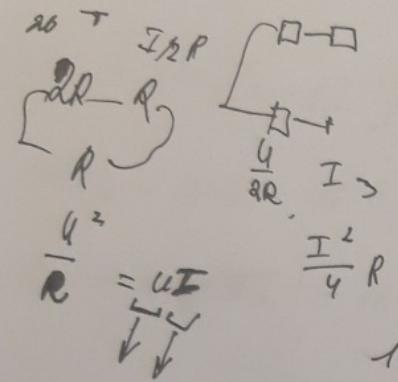 20 T
I/2 R
2R — R
R
U/2R
I
U²/R = UI
I²/4 R
1